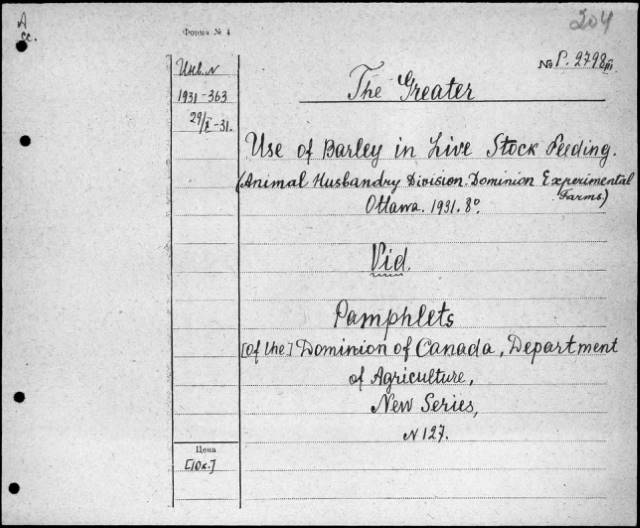 A
cc.
204
Форма № 4
№ P. 2798/III
Инв. N
1931-363
29/X-31.
The Greater
Use of Barley in Live Stock Feeding.
(Animal Husbandry Division. Dominion Experimental
Farms)
Ottawa. 1931. 8º.
Vid.
Pamphlets
[of the] Dominion of Canada, Department
of Agriculture,
New Series,
N 127.
Цена
[10к.]